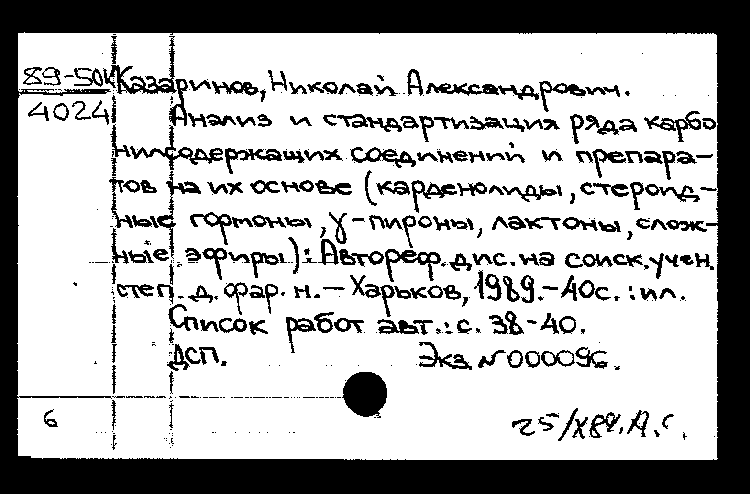 89-50к Казаринов, Николай Александрович.
4024 Анализ и стандартизация ряда карбо
нилсодержащих соединений и препара-
тов на их основе (карденолиды, стероид-
ные гормоны, γ-пироны, лактоны, слож-
ные эфиры): Автореф. дис. на соиск. учен.
степ. д. фар. н. - Харьков, 1989. - 40с. : ил.
Список работ авт.: с. 38-40.
ДСП. Экз. N 000096.
6 25/X89. А.С.